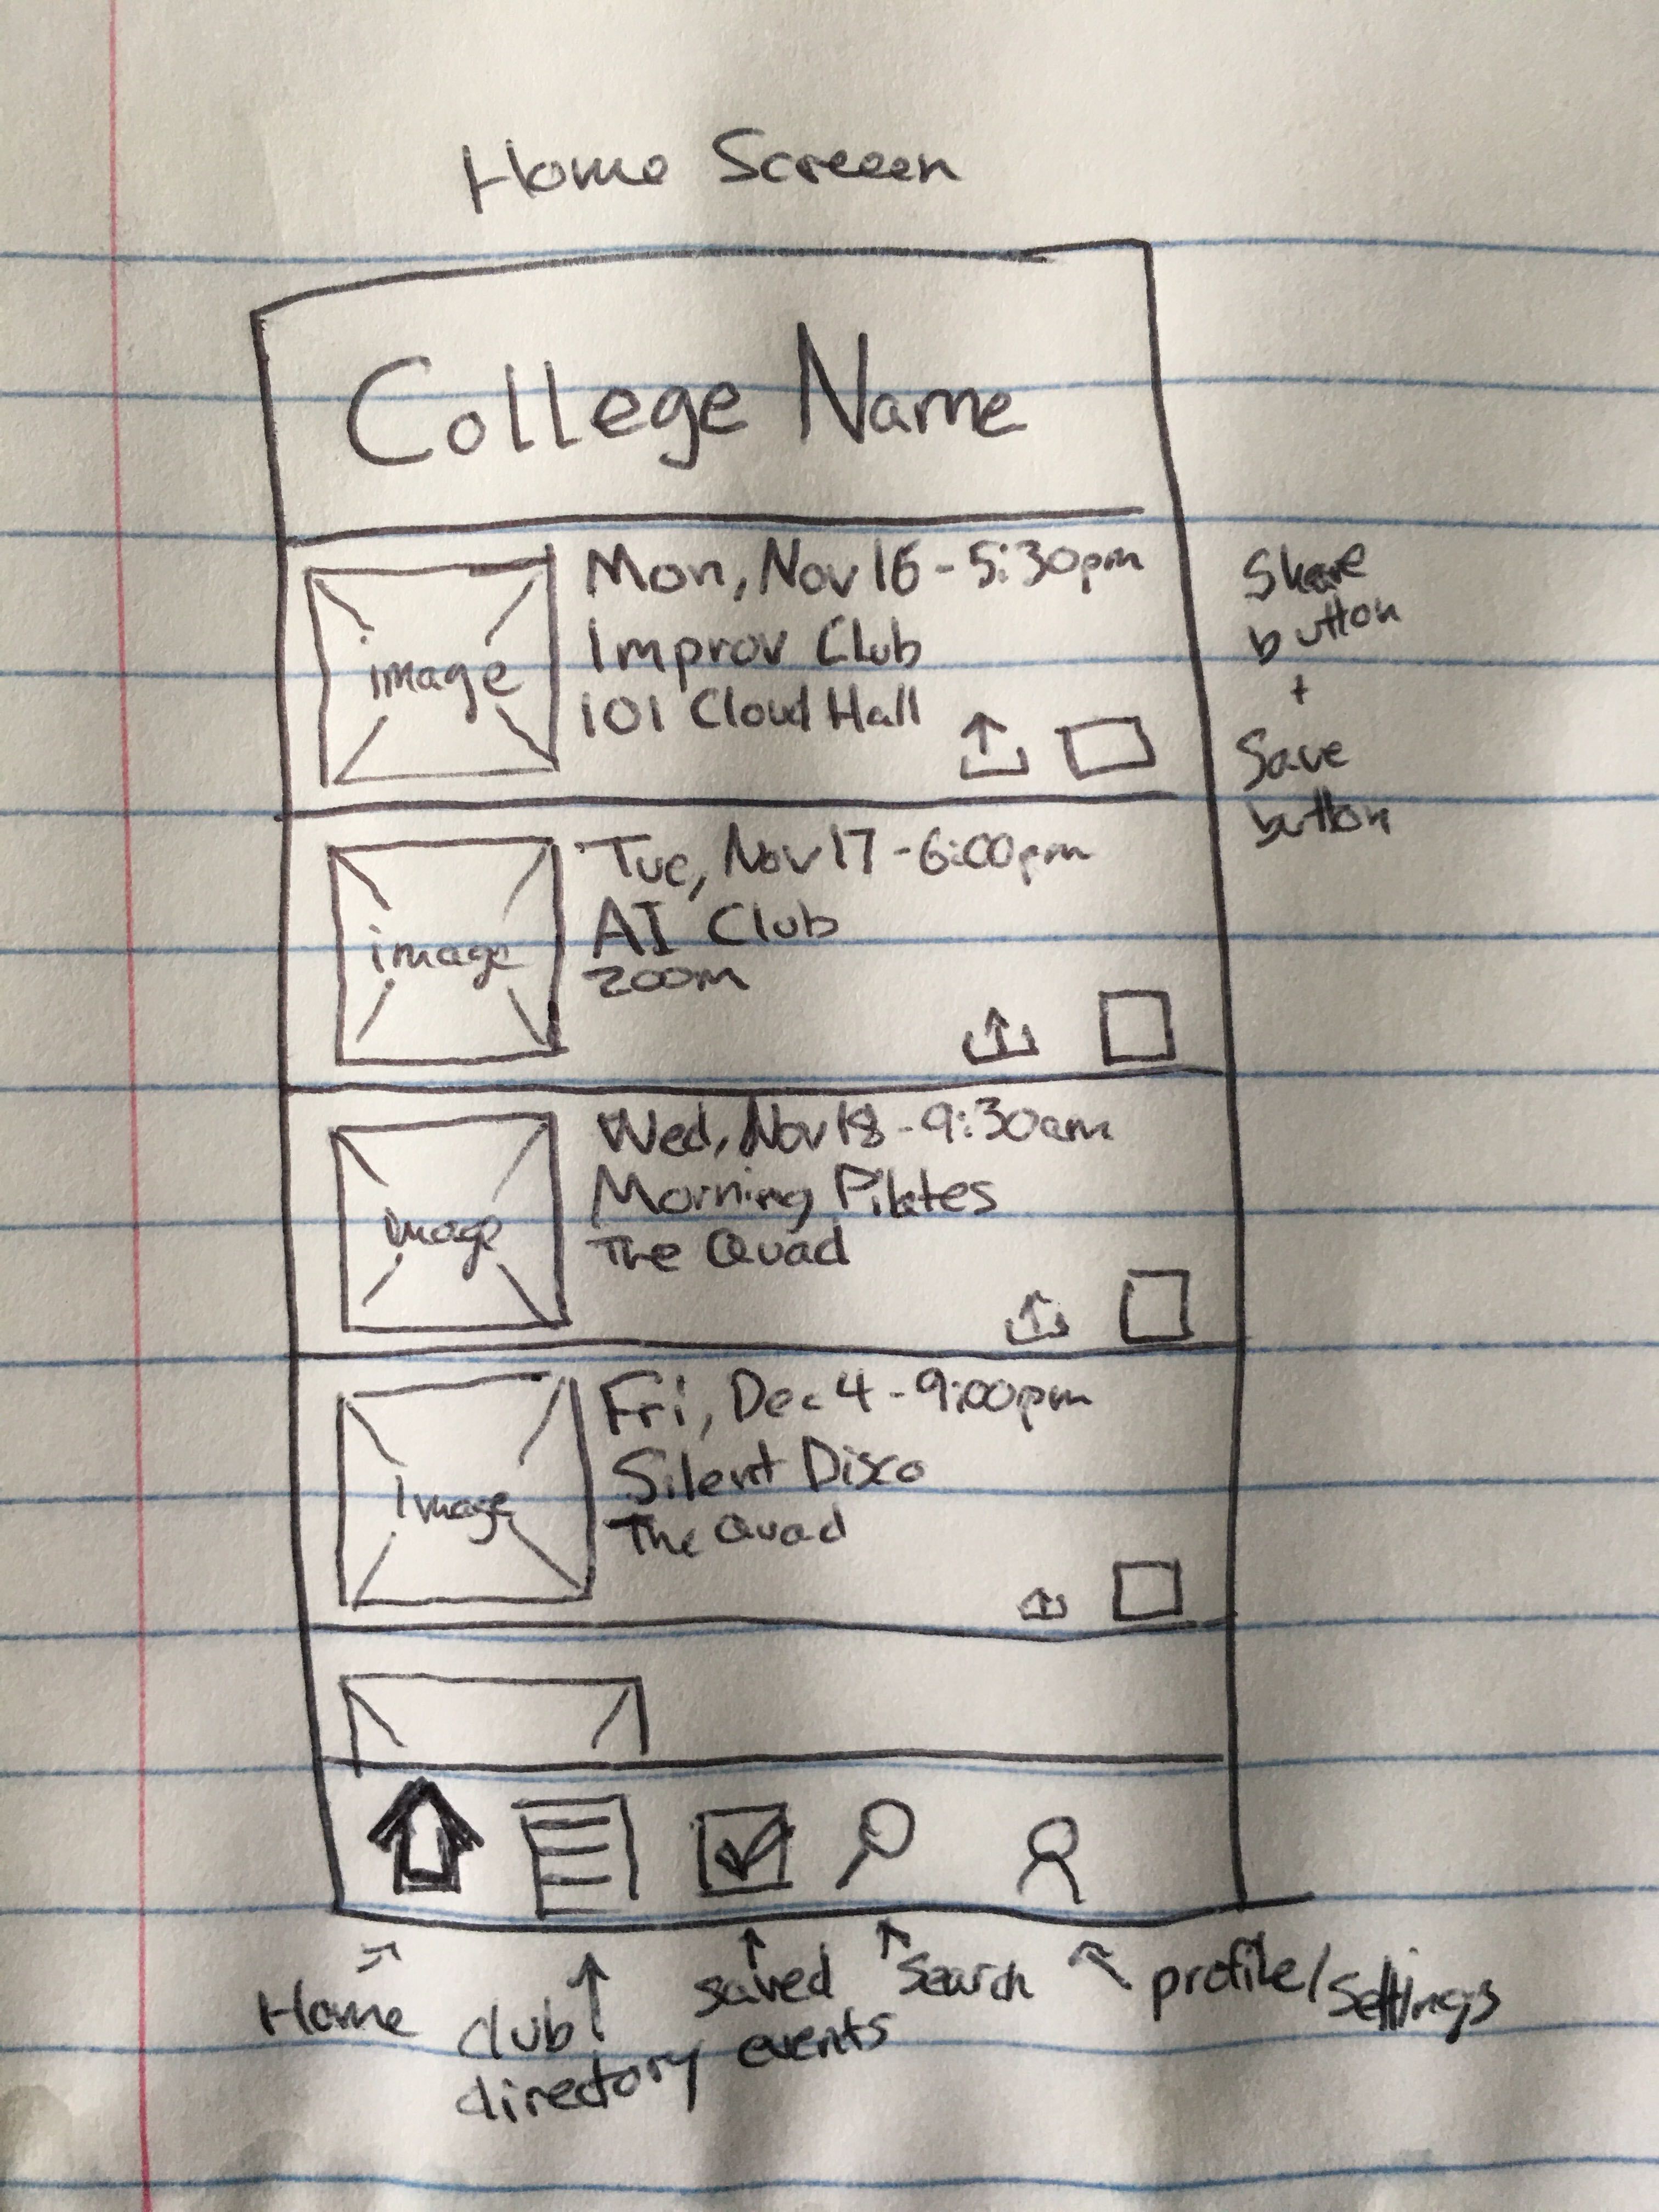 Home Screeen
College Name
image
Mon, Nov 16 - 5:30pm
Improv Club
101 Cloud Hall
Share
button
+
Save
button
image
Tue, Nov 17 - 6:00pm
AI Club
zoom
image
Wed, Nov 18 - 9:30am
Morning Pilates
The Quad
image
Fri, Dec 4 - 9:00pm
Silent Disco
The Quad
Home
club
directory
saved
events
search
profile/settings